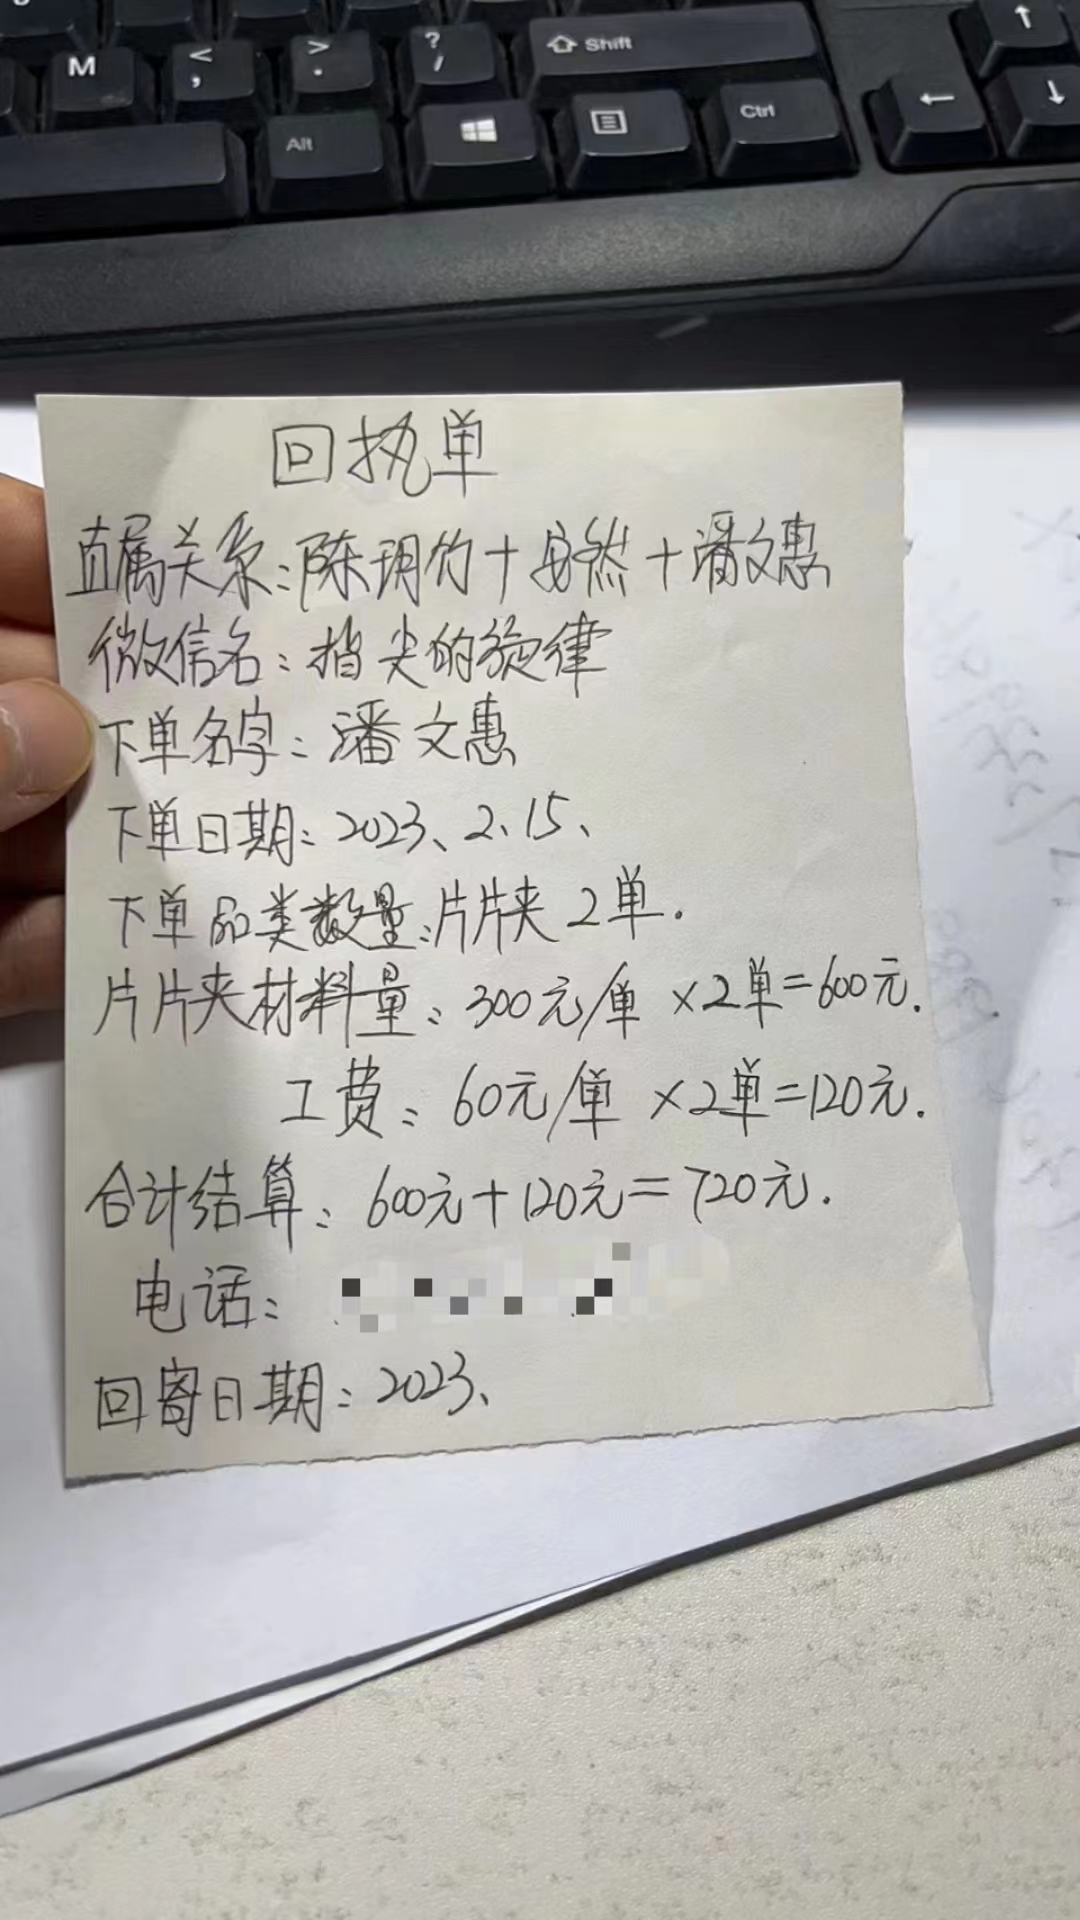 M
<
,
>
.
?
/
Shift
Alt
Ctrl
回执单
直属关系:陈玥竹+安然+潘文惠
微信名:指尖的旋律
下单名字:潘文惠
下单日期:2023、2、15、
下单品类数量:片片夹 2单.
片片夹材料量:300元/单 ×2单=600元.
工费:60元/单 ×2单=120元.
合计结算:600元+120元=720元.
电话:
回寄日期:2023、